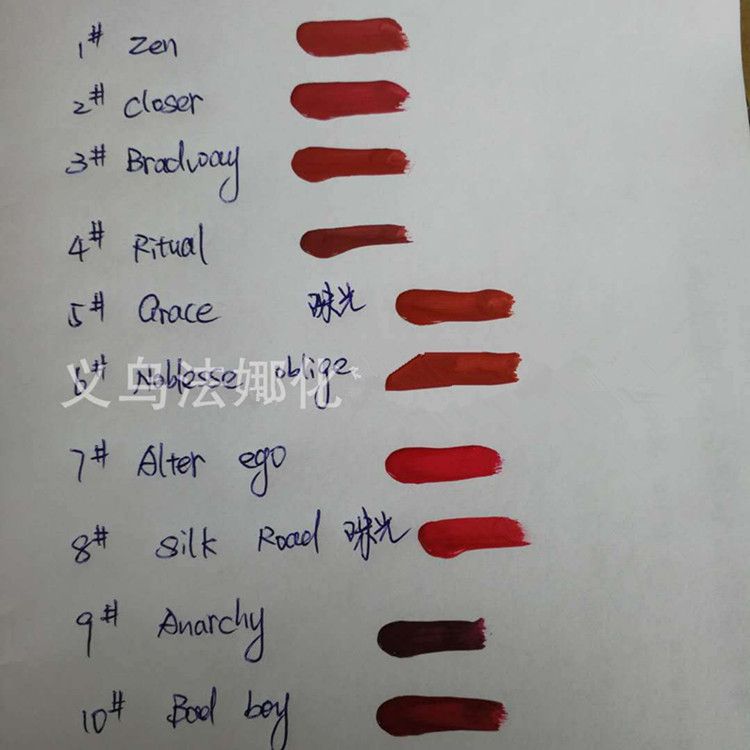 1# Zen
2# Closer
3# Bradway
4# Ritual
5# Grace 珠光
6# Noblesse oblige
义乌法娜化
7# Alter ego
8# Silk Road 珠光
9# Anarchy
10# Bad boy